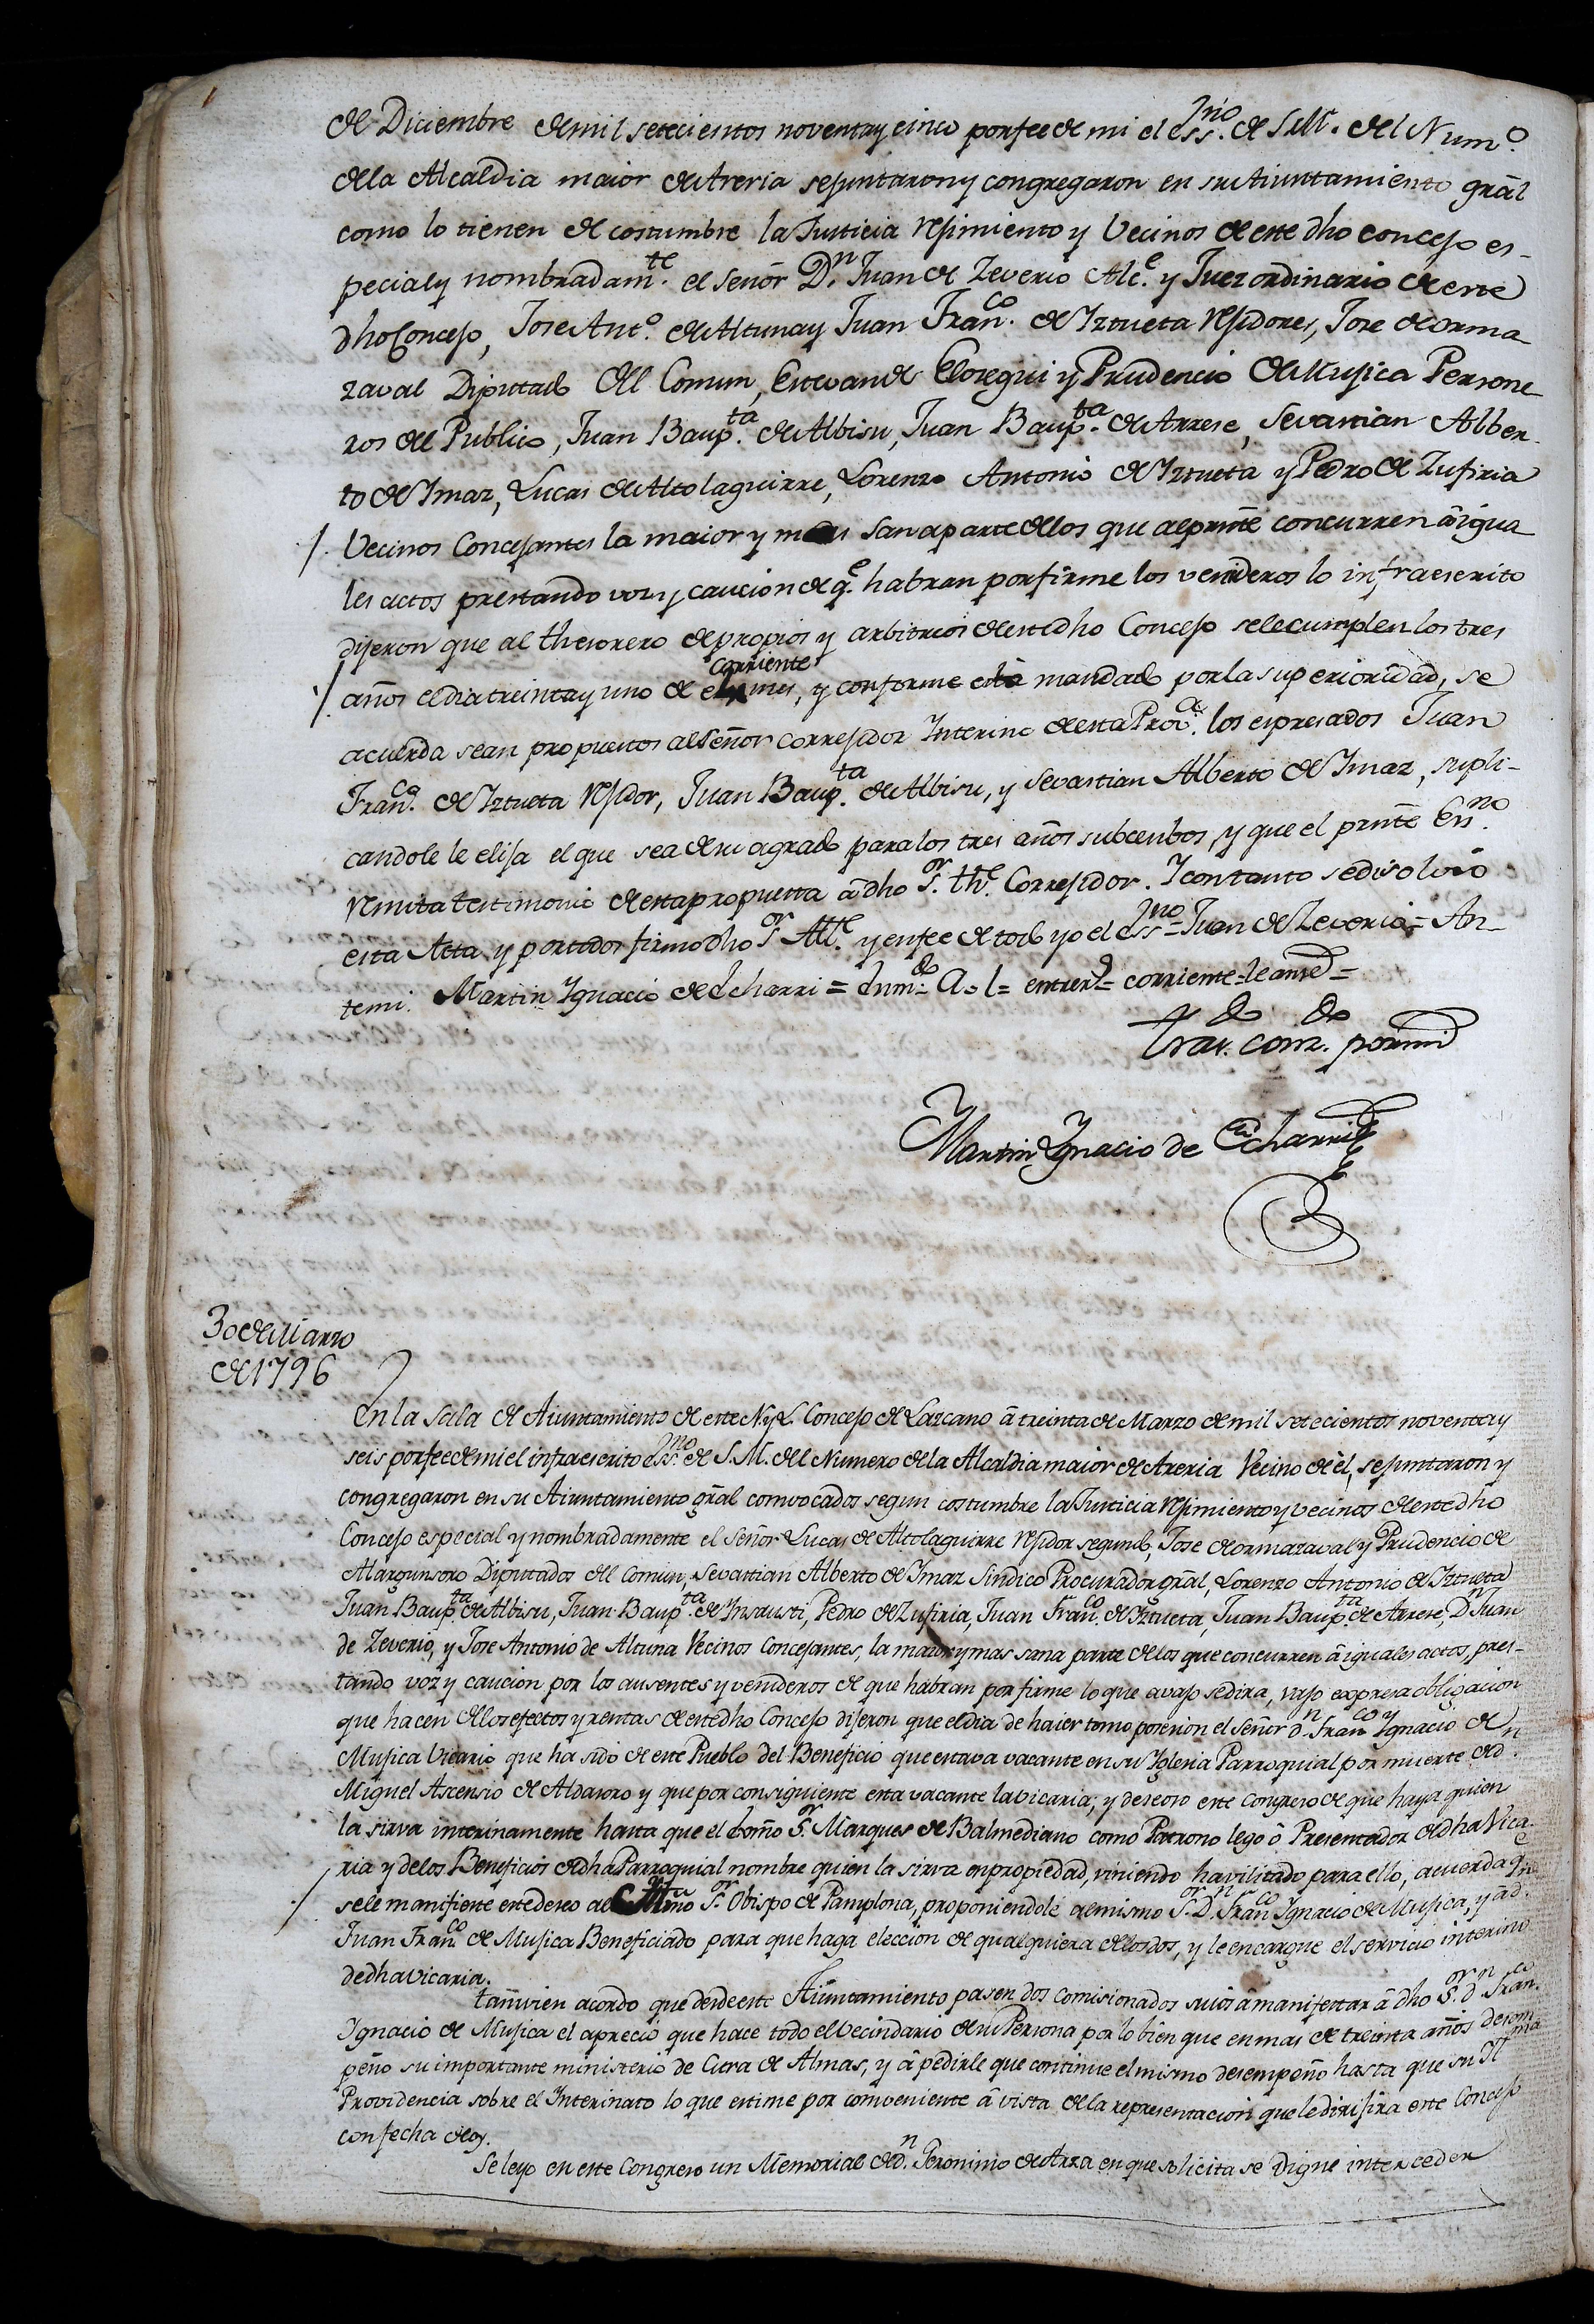 de Diciembre de mil setecientos noventa y cinco por fee de mi el Ess.no de S.M. del Num.o
de la Alcaldia maior de Areria se juntaron y congregaron en su Aiuntamiento grâl
como lo tienen de costumbre la Justicia rejimiento y Vecinos de este dho concejo es-
pecial y nombradam.te el señor D.n Juan de Zeverio Alc.e y Juez ordinario de este
dho Concejo, Jose Ant.o de Altuna y Juan Fran.co de Yztueta Rejidores, Jose de orma
zaval Diputado del Comun, Estevan de Elosegui y Prudencio de Mujica Persone-
ros del Publico, Juan Baup.ta de Albisu, Juan Baup.ta de Arrese, Sevastian Alber-
to de Ymaz, Lucas de Altolaguirre, Lorenzo Antonio de Yztueta y Pedro de Zufiria
/. Vecinos Concejantes la maior y mas sana parte de los que al prnte concurren â igua
les actos prestando voz y caucion de q.e habran por firme los venideros lo infraescrito
dijeron que al thesorero de propios y arbitrios de este dho Concejo se le cumplen los tres
corriente
./ años el dia treinta y uno de el mes, y conforme està mandado por la superioridad, se
acuerda sean propuestos al Señor Correjidor Interino de esta Prov.a los espresados Juan
Fran.co de Yztueta Rejidor, Juan Baup.ta de Albisu, y Sevastian Alberto de Ymaz, supli-
candole le elija el que sea de su agrado para los tres años subcentos, y que el prnte Ess.no
remita testimonio de esta propuesta â dho S.or th.e Correjidor. Y con tanto se disolvió
esta Atta y por todos firmo dho S.or Alc.e y en fee de todo yo el Ess.no = Juan de Zeverio = An-
temi. Martin Ygnacio de Echarri = enm.do = a. l = entrer.s = corriente = le anted =
tras. corr. por mi
Martin Ygnacio de Echarri
30 de Marzo
de 1796
En la Sala de Aiuntamiento de este N. y L. Concejo de Lazcano â treinta de Marzo de mil setecientos noventa y
seis por fee de mi el infraescrito Ess.no de S.M. del Numero de la Alcaldia maior de Areria Vecino de èl, se juntaron y
congregaron en su Aiuntamiento grâl comvocados segun costumbre la Justicia rejimiento y vecinos de este dho
Concejo especial y nombradamente el Señor Lucas de Altolaguirre Rejidor segundo, Jose de ormazaval y Prudencio de
Alargunsoro Diputados del Comun, Sevastian Alberto de Ymaz Sindico Procurador grâl, Lorenzo Antonio de Yztueta
Juan Baup.ta de Albisu, Juan Baup.ta de Ynsausti, Pedro de Zufiria, Juan Fran.co de Yztueta, Juan Baup.ta de Arrese, D.n Juan
de Zeverio, y Jose Antonio de Altuna Vecinos Concejantes, la maior y mas sana parte de los que concurren â iguales actos, pres-
tando voz y caucion por los ausentes y venideros de que habran por firme lo que avajo se dira, vajo expresa obligacion
que hacen de los efectos y rentas de este dho Concejo dijeron que el dia de haier tomo posesion el Señor d.n Fran.co Ygnacio de
Mujica Vicario que ha sido de este Pueblo del Beneficio que estava vacante en su Yglesia Parroquial por muerte de d.n
Miguel Ascensio de Aldasoro y que por consiguiente esta vacante la vicaria; y deseoso este Congreso de que haya quien
la sirva interinamente hasta que el Exmo S.or Marques de Balmediano como Patrono lego ô Presentador de dha Vica-
ria y de los Beneficios de dha Parroquial nombre quien la sirva en propiedad, viniendo havilitado para ello, acuerda q.e
./ se le manifieste este deseo al Yltmo S.or Obispo de Pamplona, proponiendole al mismo S.or D.n Fran.co Ygnacio de Mujica, y â d.n
Juan Fran.co de Mujica Beneficiado para que haga eleccion de qualquiera de los dos, y le encargue el servicio interino
de dha vicaria.
Tamvien acordo que desde este Aiuntamiento pasen dos comisionados suios â manifestar â dho S.or d.n Fran.co
Ygnacio de Mujica el aprecio que hace todo el vecindario de su Persona por lo bien que en mas de treinta años desem
peño su importante ministerio de Cura de Almas, y â pedirle que continue el mismo desempeño hasta que su Yl.ma
Providencia sobre el Interinato lo que estime por comveniente â vista de la representacion que le dirijira este Concejo
con fecha de oy.
Se leyo en este Congreso un Memorial de d.n Geronimo de Arza en que solicita se digne interceder